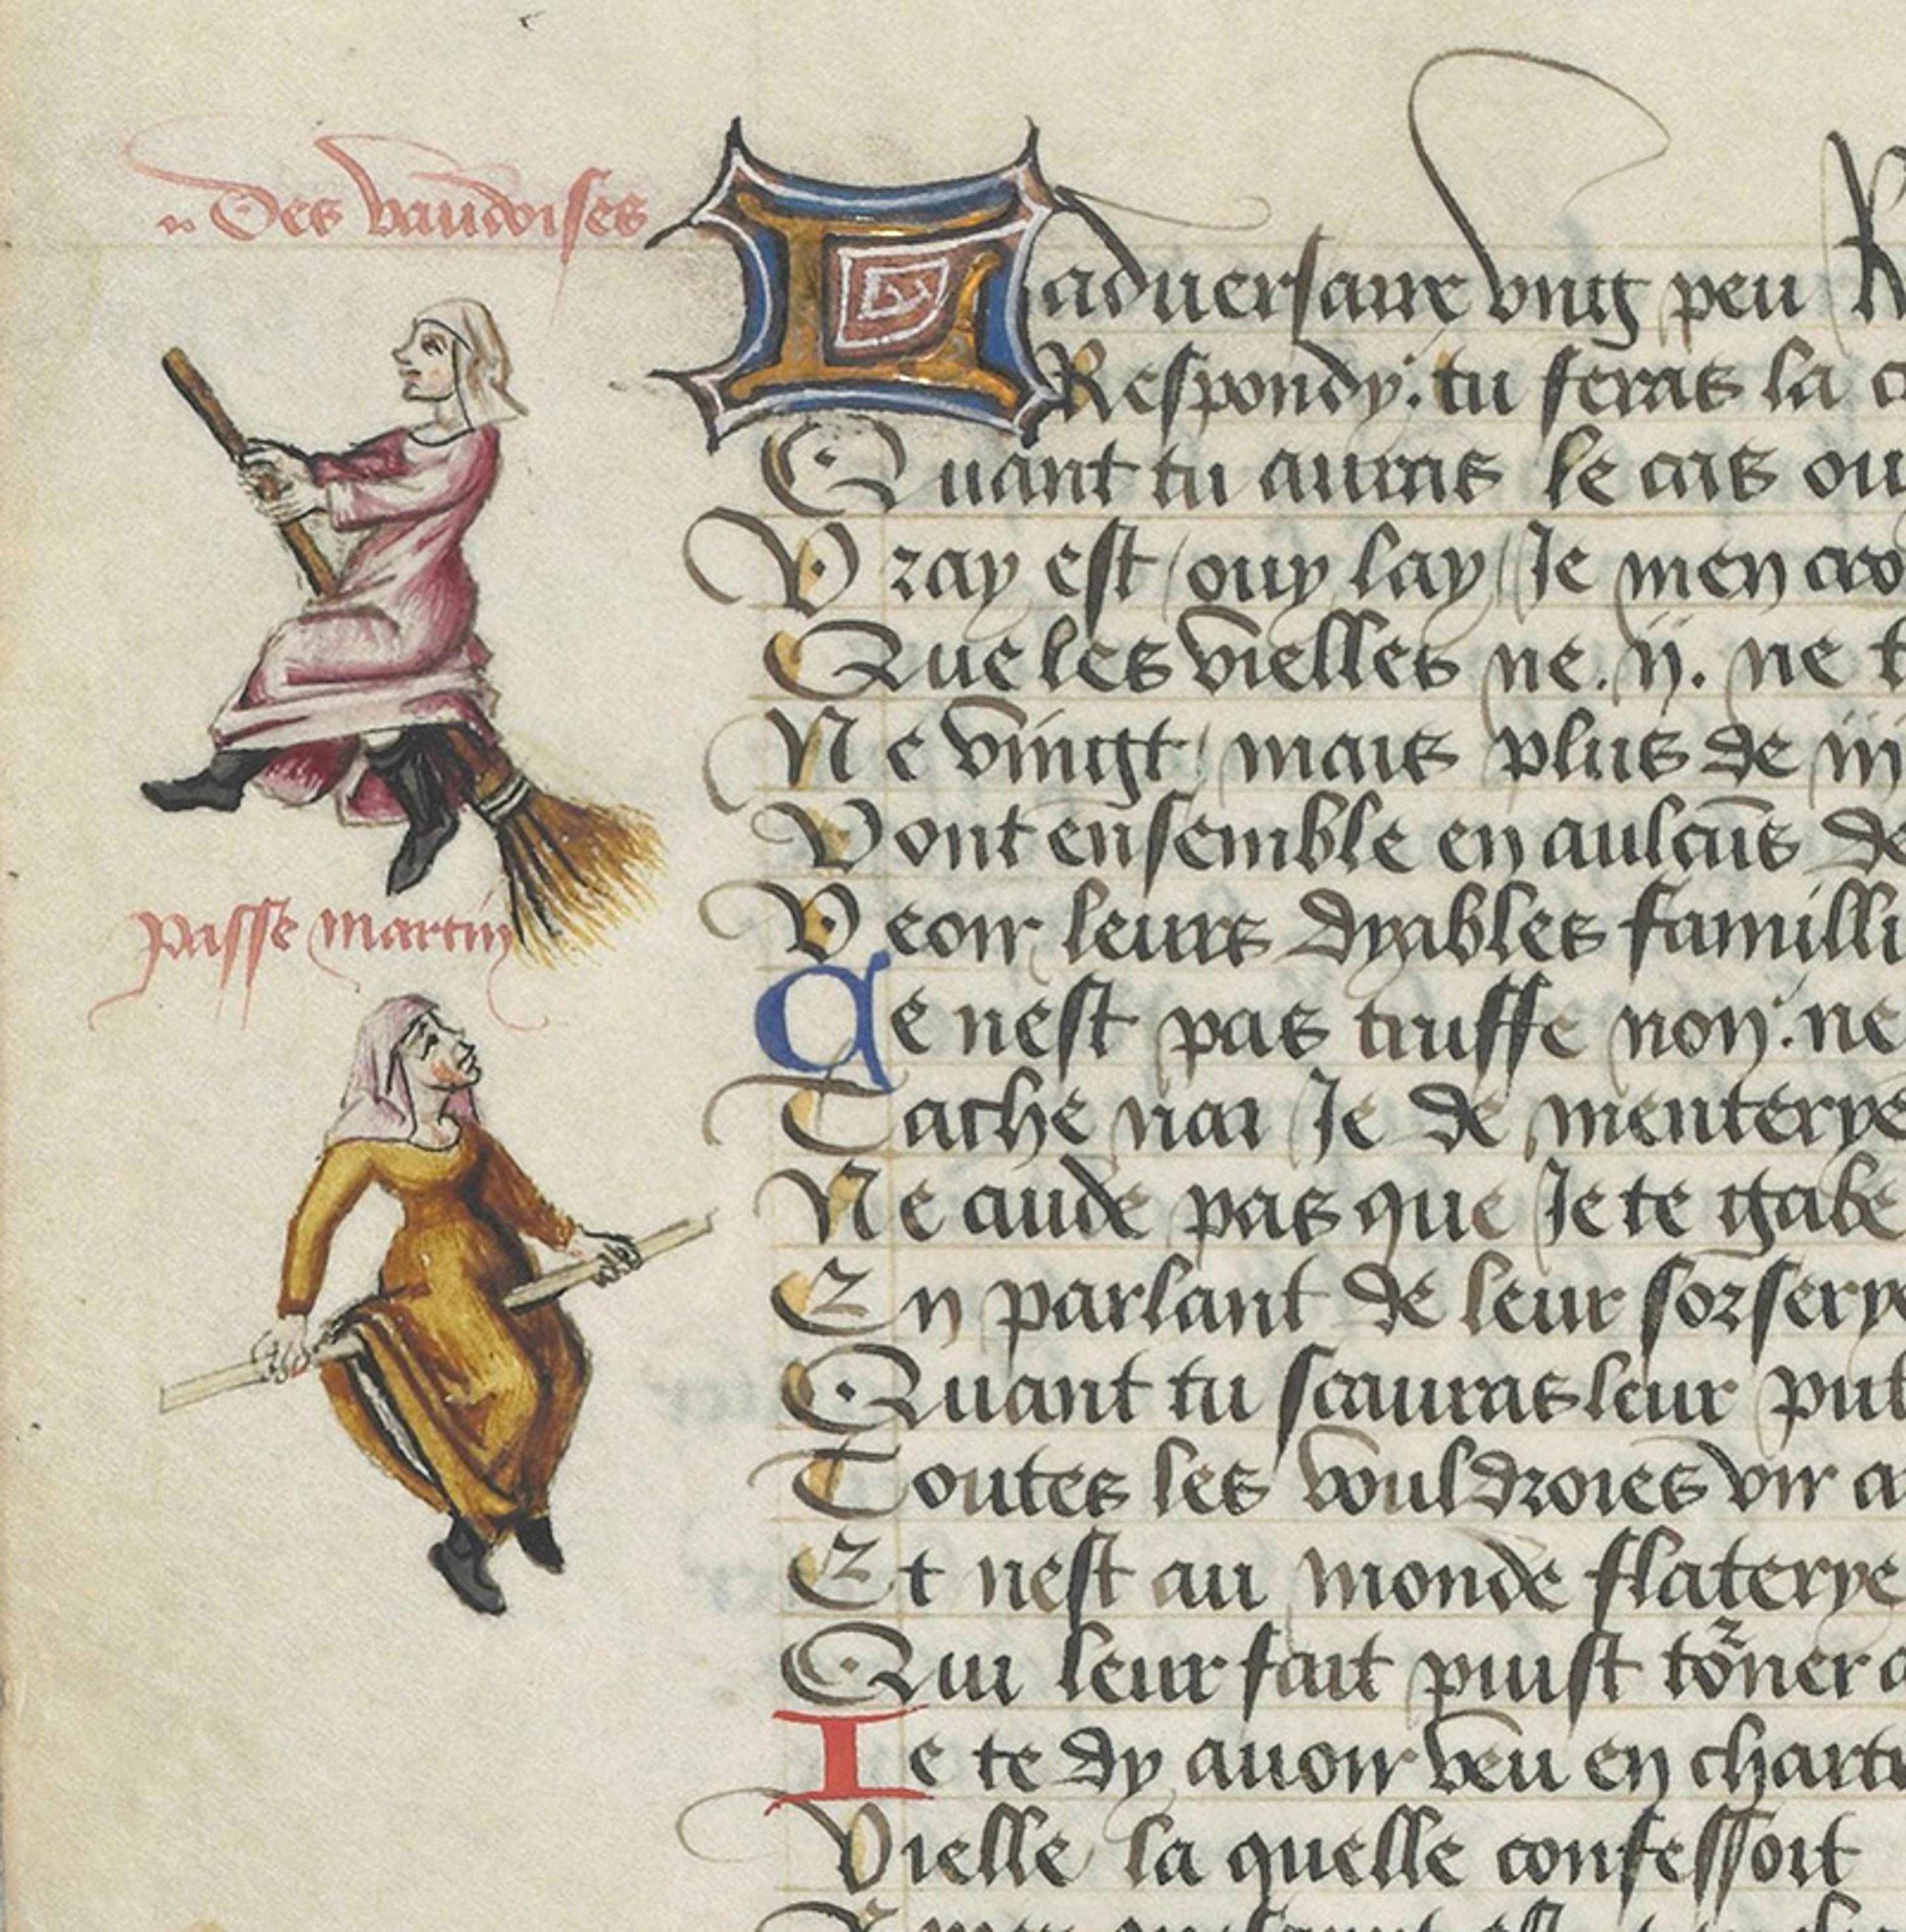 Des vaudoises
Ladversaire ung peu
Respondy: tu feras la
Quant tu auras le cas
Vray est ouy lay Je men
Que les vielles ne .ij. ne
Ne vingt mais plus de
Vont ensemble en aulcūs
Veoir leurs dyables
Ce nest pas truffe non: ne
Tache nai Je de menterye
Ne cuide pas que Je te gabe
En parlant de leur sorserye
Quant tu scauras leur
Toutes les vouldroies vir
Et nest au monde flaterye
Qui leur fait puist
Ie te dy avoir veu en
Vielle la quelle confessoit
passe martin